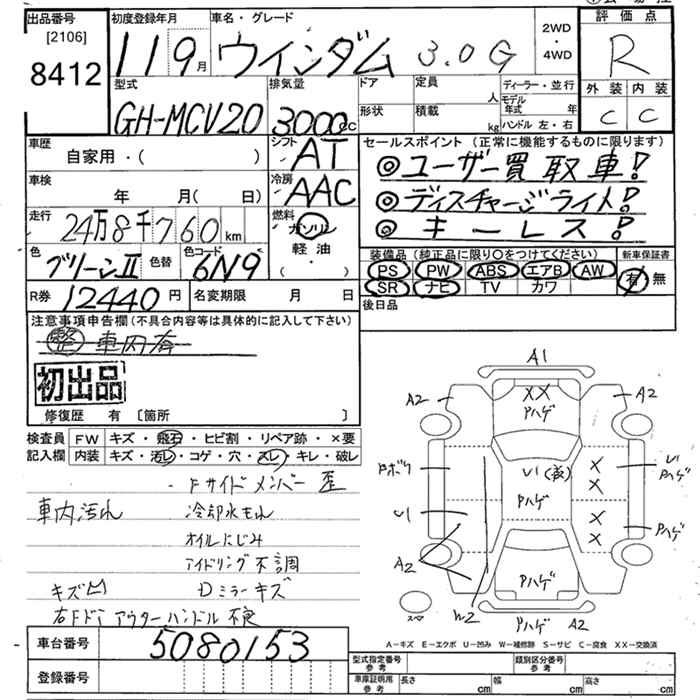 出品番号 初度登録年月 車名・グレード 2WD・4WD 評価点
[2106]
8412
11 9月 ウインダム 3.0G R
型式 排気量 ドア 定員 人 ディーラー・並行 外装 内装
GH-MCV20 3000cc 形状 積載 kg モデル年式 年 C C
ハンドル 左・右
車歴 シフト セールスポイント (正常に機能するものに限ります)
自家用・( ) AT ◎ユーザー買取車!
車検 冷房 ◎ディスチャージライト!
年 月(日) AAC ◎キーレス!
走行 燃料
24万8千760km ガソリン
軽油・( )
色 色替 色コード 装備品 (純正品に限り○をつけてください) 新車保証書
グリーンII 6N9 PS PW ABS エアB AW 有 無
R券 12440円 名変期限 月 日 SR ナビ TV カワ
注意事項申告欄 (不具合内容等は具体的に記入して下さい) 後日品
整 車内有
初出品
修復歴 有 [箇所 ]
検査員 FW キズ・飛石・ヒビ割・リペア跡・×要
記入欄 内装 キズ・汚レ・コゲ・穴・スレ・キレ・破レ
・Fサイドメンバー歪
車内汚れ 冷却水もれ
オイルにじみ
アイドリング不調
キズ凹 Dミラーキズ
右Fドア アウターハンドル不良
車台番号 5080153
登録番号
A1
A2 XX Pハゲ A2
Fドボリ U1 Pハゲ X X U1 Pハゲ
U1 X X Pハゲ
A2 W2 Pハゲ
スマ Pハゲ A2
A-キズ E-エクボ U-凹み W-補修跡 S-サビ C-腐食 XX-交換済
型式指定番号 参考 類別区分番号 参考
車庫証明用 参考 長さ cm 幅 cm 高さ cm